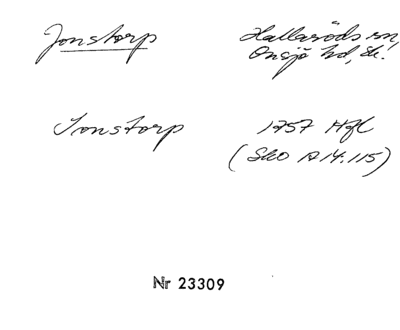 Jonstorp Hallaröds sn,
Onsjö hd, Sk.
Jonstorp 1757 Hfl
(Sko A 14.115)
Nr 23309